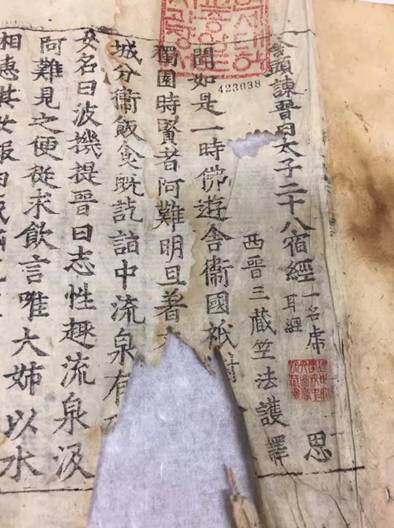 423038
頭諫晉曰太子二十八宿經 一名虎耳經 思
西晉三蔵竺法護譯
聞如是一時佛遊舍衛國祇
獨園時賢者阿難明旦著
城分衛飯食旣訖詣中流泉有
女名曰波機提晉曰志性趣流泉汲
阿難見之便從求飲言唯大姉以水
相惠其女報曰